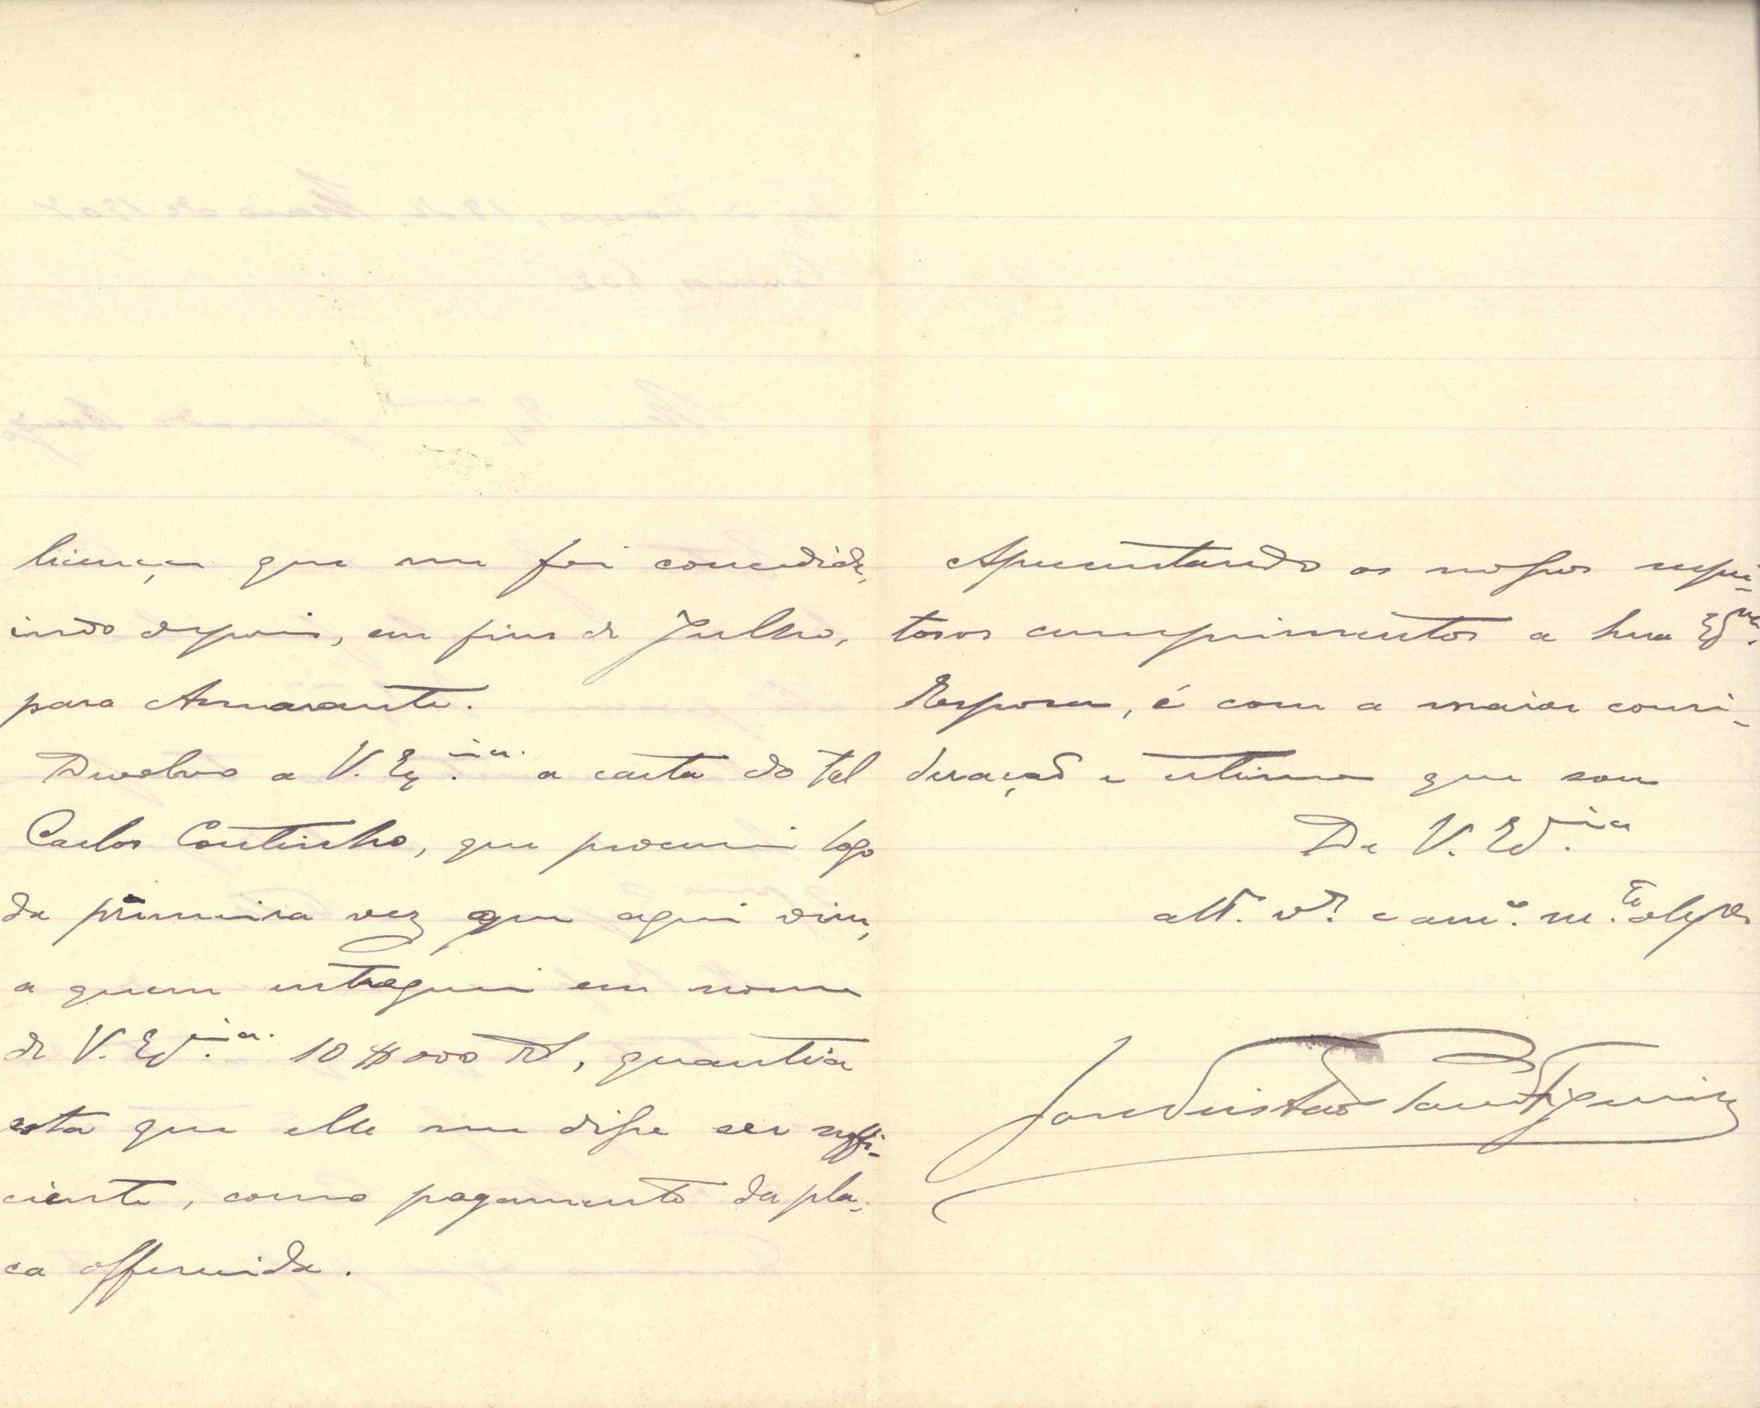 licença que me foi concedida,
indo depois, em fins de Julho,
para Amarante.
Devolvo a V. Ex.ia a carta do tal
Carlos Coutinho, que procurei logo
da primeira vez que aqui vim,
a quem entreguei em nome
de V. Ex.ia 10$000 rs, quantia
esta que elle me disse ser suffi-
ciente, como pagamento da pla-
ca offerecida.
Apresentando os nossos respei-
tosos cumprimentos a sua Ex.ma
Esposa, é com a maior consi-
deração e estima que sou
De V. Ex.ia
att.º v.or e am.º m.to
José